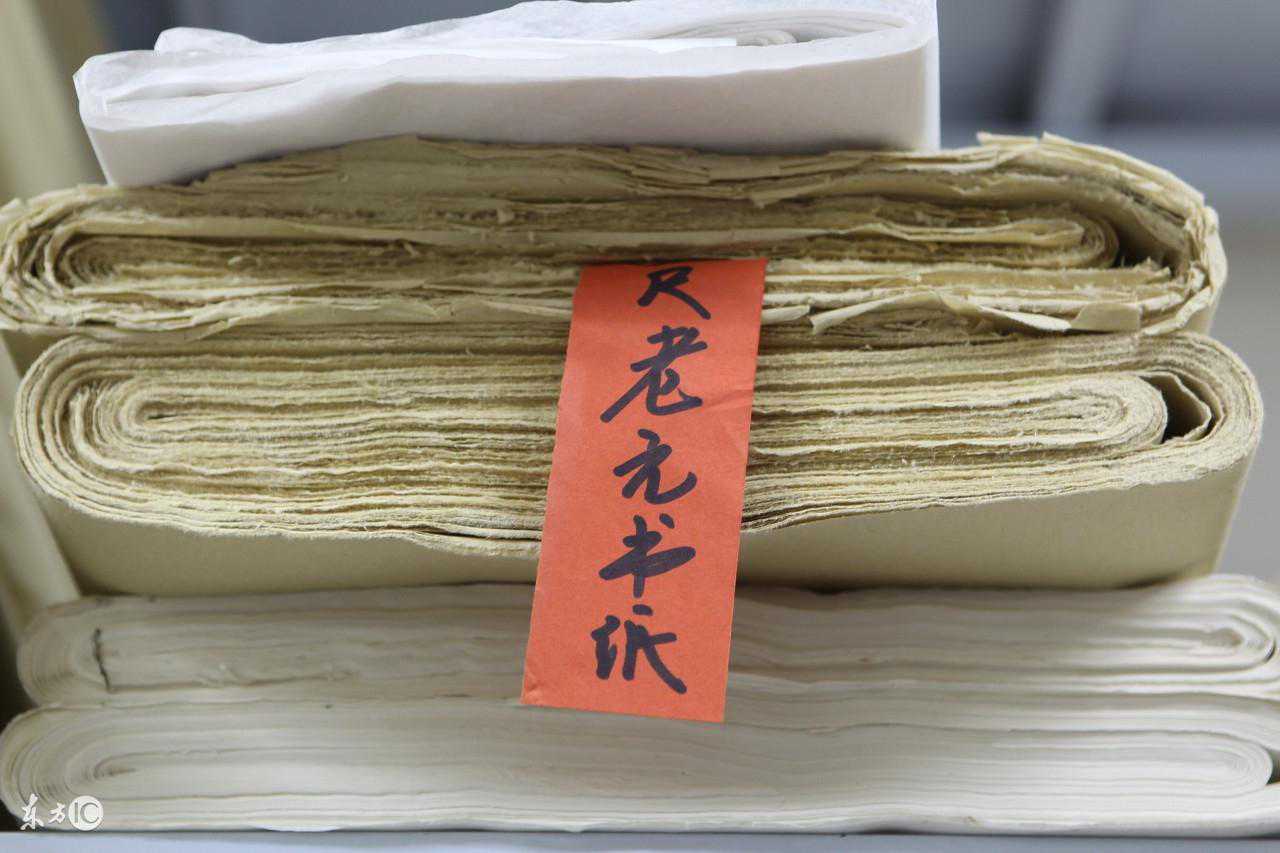 尺老元书纸
东方IC